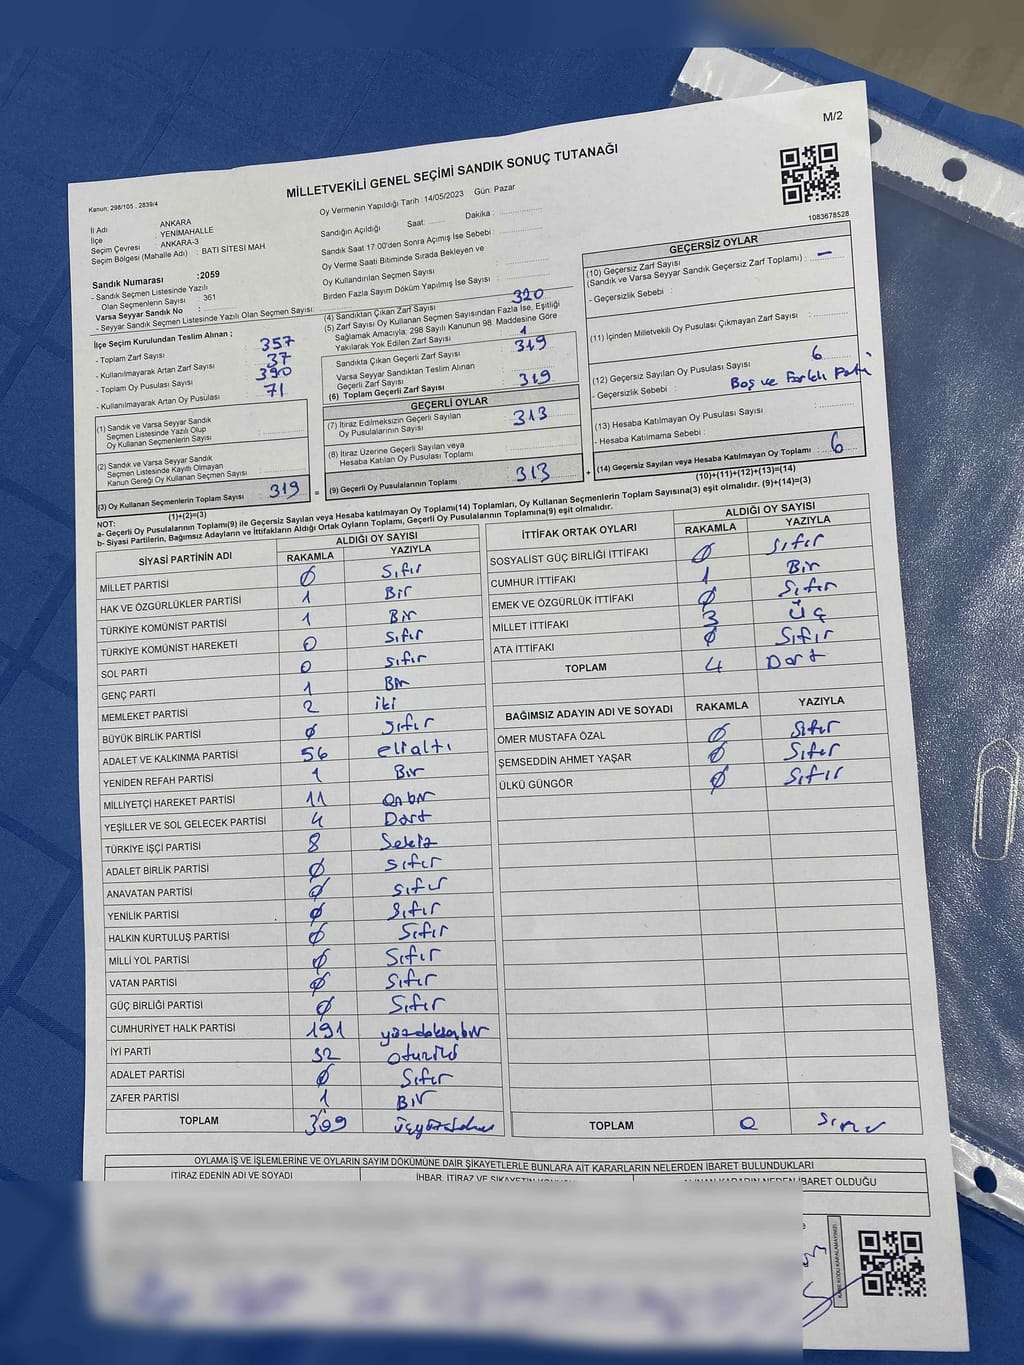 M/2
MİLLETVEKİLİ GENEL SEÇİMİ SANDIK SONUÇ TUTANAĞI
Kanun: 298/105 , 2839/4
1083678528
İl Adı : ANKARA
İlçe : YENİMAHALLE
Seçim Çevresi : ANKARA-3
Seçim Bölgesi (Mahalle Adı) : BATI SİTESİ MAH
Sandık Numarası :2059
- Sandık Seçmen Listesinde Yazılı
Olan Seçmenlerin Sayısı : 361
Varsa Seyyar Sandık No :
- Seyyar Sandık Seçmen Listesinde Yazılı Olan Seçmen Sayısı:
Oy Vermenin Yapıldığı Tarih : 14/05/2023 Gün: Pazar
Sandığın Açıldığı Saat: Dakika :
Sandık Saat 17:00'den Sonra Açmış İse Sebebi :
Oy Verme Saati Bitiminde Sırada Bekleyen ve
Oy Kullandırılan Seçmen Sayısı :
Birden Fazla Sayım Döküm Yapılmış İse Sayısı :
İlçe Seçim Kurulundan Teslim Alınan ;
- Toplam Zarf Sayısı : 357
- Kullanılmayarak Artan Zarf Sayısı : 37
- Toplam Oy Pusulası Sayısı : 390
- Kullanılmayarak Artan Oy Pusulası : 71
(1) Sandık ve Varsa Seyyar Sandık
Seçmen Listesinde Yazılı Olup
Oy Kullanan Seçmenlerin Sayısı :
(2) Sandık ve Varsa Seyyar Sandık
Seçmen Listesinde Kayıtlı Olmayan
Kanun Gereği Oy Kullanan Seçmen Sayısı :
(3) Oy Kullanan Seçmenlerin Toplam Sayısı : 319
(1)+(2)=(3)
(4) Sandıktan Çıkan Zarf Sayısı : 320
(5) Zarf Sayısı Oy Kullanan Seçmen Sayısından Fazla İse, Eşitliği
Sağlamak Amacıyla; 298 Sayılı Kanunun 98. Maddesine Göre
Yakılarak Yok Edilen Zarf Sayısı : 1
Sandıkta Çıkan Geçerli Zarf Sayısı : 319
Varsa Seyyar Sandıktan Teslim Alınan
Geçerli Zarf Sayısı :
(6) Toplam Geçerli Zarf Sayısı : 319
GEÇERLİ OYLAR
(7) İtiraz Edilmeksizin Geçerli Sayılan
Oy Pusulalarının Sayısı : 313
(8) İtiraz Üzerine Geçerli Sayılan veya
Hesaba Katılan Oy Pusulası Toplamı :
= (9) Geçerli Oy Pusulalarının Toplamı : 313
GEÇERSİZ OYLAR
(10) Geçersiz Zarf Sayısı
(Sandık ve Varsa Seyyar Sandık Geçersiz Zarf Toplamı) : —
- Geçersizlik Sebebi :
(11) İçinden Milletvekili Oy Pusulası Çıkmayan Zarf Sayısı :
(12) Geçersiz Sayılan Oy Pusulası Sayısı : 6
- Geçersizlik Sebebi : Boş ve Farklı Parti
(13) Hesaba Katılmayan Oy Pusulası Sayısı :
- Hesaba Katılmama Sebebi :
+ (14) Geçersiz Sayılan veya Hesaba Katılmayan Oy Toplamı : 6
(10)+(11)+(12)+(13)=(14)
NOT:
a- Geçerli Oy Pusulalarının Toplamı(9) ile Geçersiz Sayılan veya Hesaba katılmayan Oy Toplamı(14) Toplamları, Oy Kullanan Seçmenlerin Toplam Sayısına(3) eşit olmalıdır. (9)+(14)=(3)
b- Siyasi Partilerin, Bağımsız Adayların ve İttifakların Aldığı Ortak Oyların Toplamı, Geçerli Oy Pusulalarının Toplamına(9) eşit olmalıdır.
SİYASİ PARTİNİN ADI ALDIĞI OY SAYISI
RAKAMLA YAZIYLA
MİLLET PARTİSİ 0 Sıfır
HAK VE ÖZGÜRLÜKLER PARTİSİ 1 Bir
TÜRKİYE KOMÜNİST PARTİSİ 1 Bir
TÜRKİYE KOMÜNİST HAREKETİ 0 Sıfır
SOL PARTİ 0 Sıfır
GENÇ PARTİ 1 Bir
MEMLEKET PARTİSİ 2 iki
BÜYÜK BİRLİK PARTİSİ 0 Sıfır
ADALET VE KALKINMA PARTİSİ 56 elialtı
YENİDEN REFAH PARTİSİ 1 Bir
MİLLİYETÇİ HAREKET PARTİSİ 11 Onbir
YEŞİLLER VE SOL GELECEK PARTİSİ 4 Dört
TÜRKİYE İŞÇİ PARTİSİ 8 Sekiz
ADALET BİRLİK PARTİSİ 0 Sıfır
ANAVATAN PARTİSİ 0 Sıfır
YENİLİK PARTİSİ 0 Sıfır
HALKIN KURTULUŞ PARTİSİ 0 Sıfır
MİLLİ YOL PARTİSİ 0 Sıfır
VATAN PARTİSİ 0 Sıfır
GÜÇ BİRLİĞİ PARTİSİ 0 Sıfır
CUMHURİYET HALK PARTİSİ 191 yüzdoksanbir
İYİ PARTİ 32 otuziki
ADALET PARTİSİ 0 Sıfır
ZAFER PARTİSİ 1 Bir
TOPLAM 309 üçyüzdokuz
İTTİFAK ORTAK OYLARI ALDIĞI OY SAYISI
RAKAMLA YAZIYLA
SOSYALİST GÜÇ BİRLİĞİ İTTİFAKI 0 Sıfır
CUMHUR İTTİFAKI 1 Bir
EMEK VE ÖZGÜRLÜK İTTİFAKI 0 Sıfır
MİLLET İTTİFAKI 3 Üç
ATA İTTİFAKI 0 Sıfır
TOPLAM 4 Dört
BAĞIMSIZ ADAYIN ADI VE SOYADI RAKAMLA YAZIYLA
ÖMER MUSTAFA ÖZAL 0 Sıfır
ŞEMSEDDİN AHMET YAŞAR 0 Sıfır
ÜLKÜ GÜNGÖR 0 Sıfır
TOPLAM 0 Sıfır
OYLAMA İŞ VE İŞLEMLERİNE VE OYLARIN SAYIM DÖKÜMÜNE DAİR ŞİKAYETLERLE BUNLARA AİT KARARLARIN NELERDEN İBARET BULUNDUKLARI
İTİRAZ EDENİN ADI VE SOYADI İHBAR, İTİRAZ VE ŞİKAYETİN KONUSU ALINAN KARARIN NEDEN İBARET OLDUĞU
KARE KODU KARALAMAYINIZ!